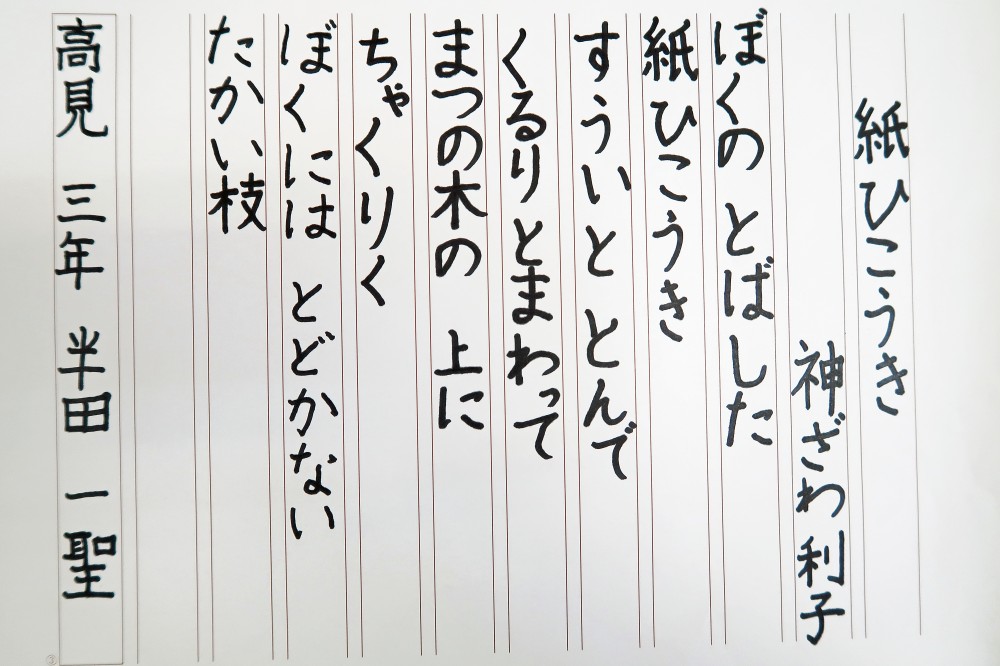 紙ひこうき
神ざわ利子
ぼくの とばした
紙ひこうき
すういと とんで
くるりとまわって
まつの木の 上に
ちゃくりく
ぼくには とどかない
たかい枝
高見 三年 半田 一聖
③